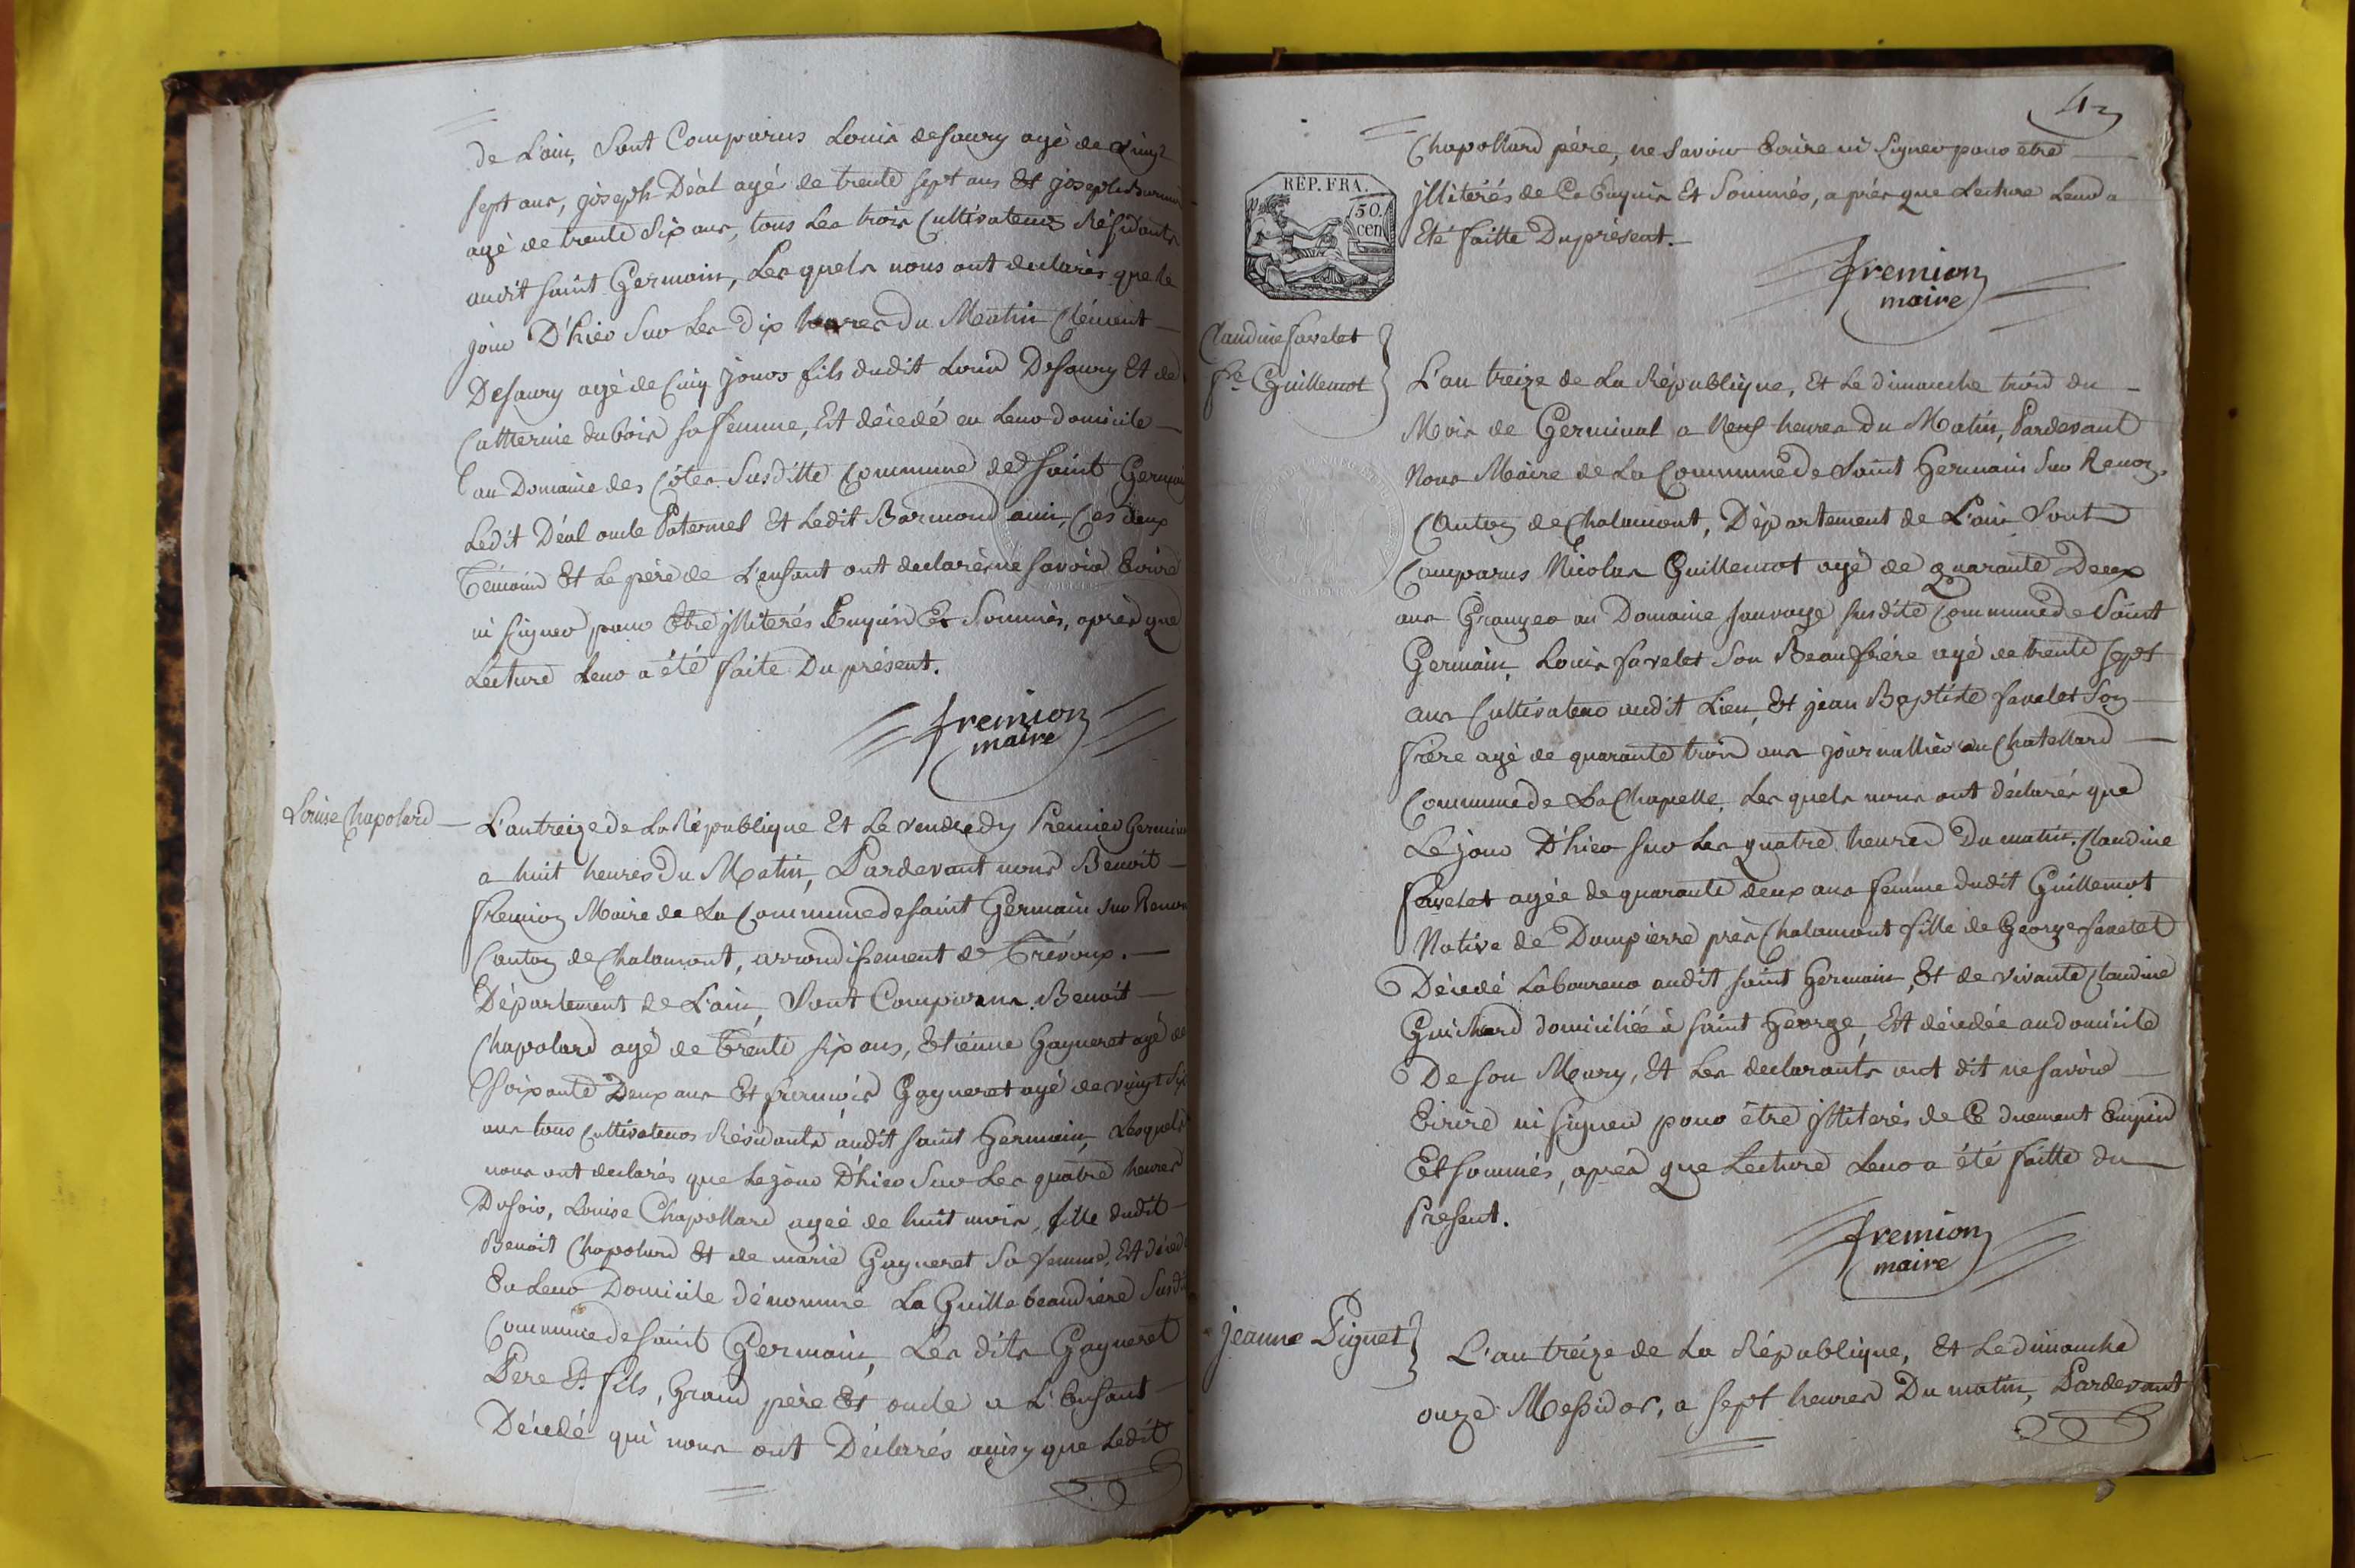 de L'ain, Sont Comparus Louis desaury agé de vingt
sept ans, joseph Déal agés de trente sept ans Et joseph
agé de trente Six ans, tous Les trois Cultivateurs Résidants
audit saint Germain, Les quels nous ont declarés que le
jour D'hier Sur Les Dix heures du Matin Clément
Desaury agé de Cinq jours fils dudit Louis Desaury Et de
Catherine dubois sa femme, Est décedé en Leur domicile
au Domaine des Côtes Susditte Commune de Saint Germain
Ledit Déal oncle Paternel Et Ledit Barmond ami, Ces deux
Témoins Et Le père de L'enfant ont declarés ne savoir Ecrire
ni signer pour Etre jlliterés Enquis Et Sommés, après que
Lecture Leur a été faite Du présent.
fremion
maire
Louise Chapolard
L'an treize de La République Et Le vendredy Premier Germinal
a huit heures du Matin, Pardevant nous Benoit
fremion Maire de La Commune de saint Germain sur Renon
Canton de Chalamont, arrondissement de Trévoux.
Département de L'ain, Sont Comparus Benoit
Chapolard agé de trente six ans, Etienne Gagneret agé de
Soixante Deux ans Et francois Gagneret agé de vingt six
ans tous Cultivateurs Résidants audit saint Germain, Lesquels
nous ont declarés que Le jour D'hier Sur Les quatre heures
Du soir, Louise Chapollard agée de huit mois, fille dudit
Benoit Chapolard Et de marie Gagneret Sa femme, Est décedé
En Leur Domicile dénommé La Guillebeaudiere Susdite
Commune de saint Germain, Les dits Gagneret
Pere Et fils, Grand père Et oncle a L'Enfant
Décedé qui nous ont Déclarés ainsy que Ledit
Chapollard père, ne Savoir Ecrire ni Signer pour être
jlliterés de Ce Enquis Et Sommés, après que Lecture Leur a
Eté faitte Du présent.
fremion
maire
REP. FRA.
50.
cen
Claudine favelet
fe Guillemot
L'an treize de La République, Et Le dimanche trois du
Mois de Germinal a Neuf heures du Matin, Pardevant
Nous Maire de La Commune de Saint Germain Sur Renon
Canton de Chalamont, Département de L'ain Sont
Comparus Nicolas Guillemot agé de quarante Deux
ans Granger au Domaine sauvage susdite Commune de Saint
Germain, Louis favelet Son Beau frère agé de trente Sept
ans Cultivateur audit Lieu, Et jean Baptiste favelet Son
frère agé de quarante trois ans journallier au Chatellard
Commune de La Chapelle, Les quels nous ont déclarés que
Le jour D'hier sur Les quatre heures Du matin. Claudine
favelet agée de quarante deux ans femme dudit Guillemot
Native de Dompierre près Chalamont fille de George favelet
Décedé Laboureur audit saint Germain, Et de vivante Claudine
Guichard domiciliée à saint George, Est décedée au domicile
De son Mary, Et Les declarants ont dit ne savoir
Ecrire ni signer pour être jlliterés de Ce duement Enquis
Et sommés, après que Lecture Leur a été faitte du
Présent.
fremion
maire
jeanne Piguet
L'an treize de La République, Et Le dimanche
onze Messidor, a sept heures Du matin, Pardevant